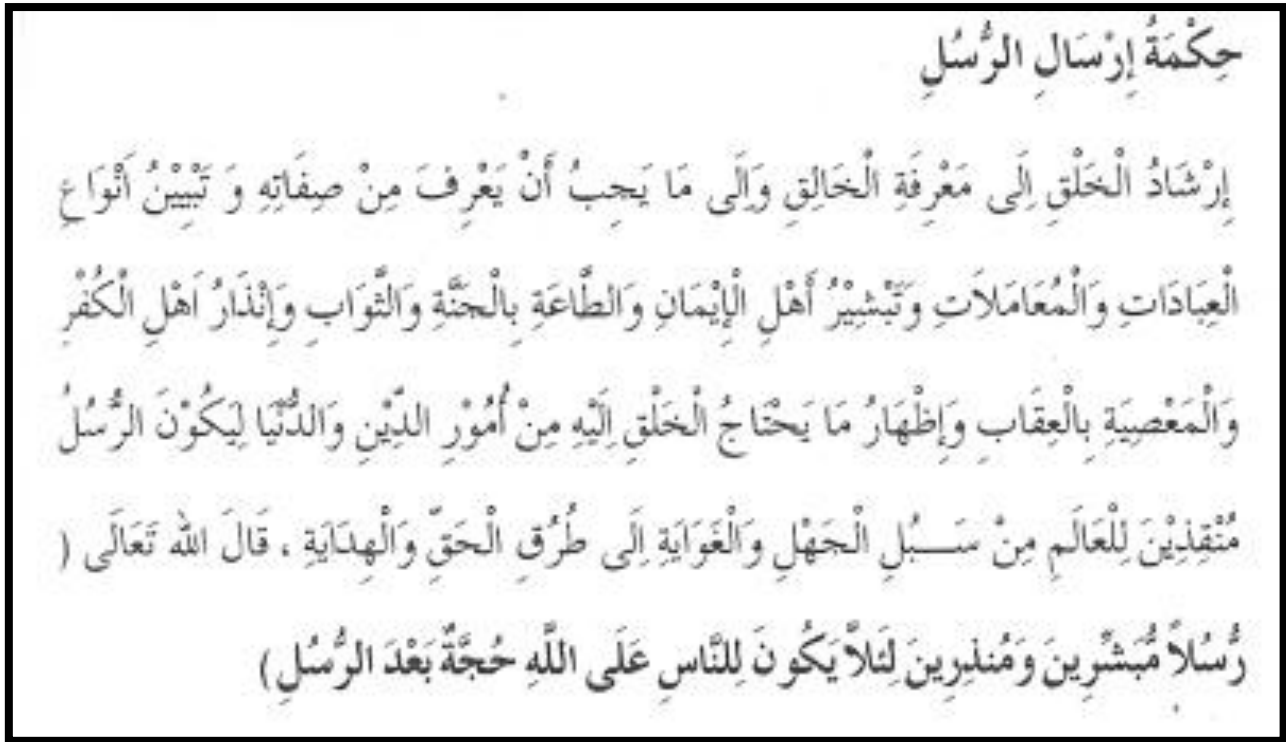 حِكْمَةُ إِرْسَالِ الرُّسُلِ
إِرْشَادُ الْخَلْقِ اِلَى مَعْرِفَةِ الْخَالِقِ وَاِلَى مَا يَجِبُ أَنْ يَعْرِفَ مِنْ صِفَاتِهِ وَ تَبْيِيْنُ اَنْوَاعِ
الْعِبَادَاتِ وَالْمُعَامَلاَتِ وَتَبْشِيْرُ أَهْلِ الْإِيْمَانِ وَالطَّاعَةِ بِالْجَنَّةِ وَالثَّوَابِ وَإِنْذَارُ اَهْلِ الْكُفْرِ
وَالْمَعْصِيَةِ بِالْعِقَابِ وَإِظْهَارُ مَا يَحْتَاجُ الْخَلْقِ اِلَيْهِ مِنْ أُمُوْرِ الدِّيْنِ وَالدُّنْيَا لِيَكُوْنَ الرُّسُلُ
مُنْقِذِيْنَ لِلْعَالَمِ مِنْ سَـــبُلِ الْجَهْلِ وَالْغَوَايَةِ اِلَى طُرُقِ الْحَقِّ وَالْهِدَايَةِ ، قَالَ الله تَعَالَى (
رُّسُلاً مُّبَشِّرِينَ وَمُنذِرِينَ لِئَلاَّ يَكُونَ لِلنَّاسِ عَلَى اللَّهِ حُجَّةٌ بَعْدَ الرُّسُلِ)